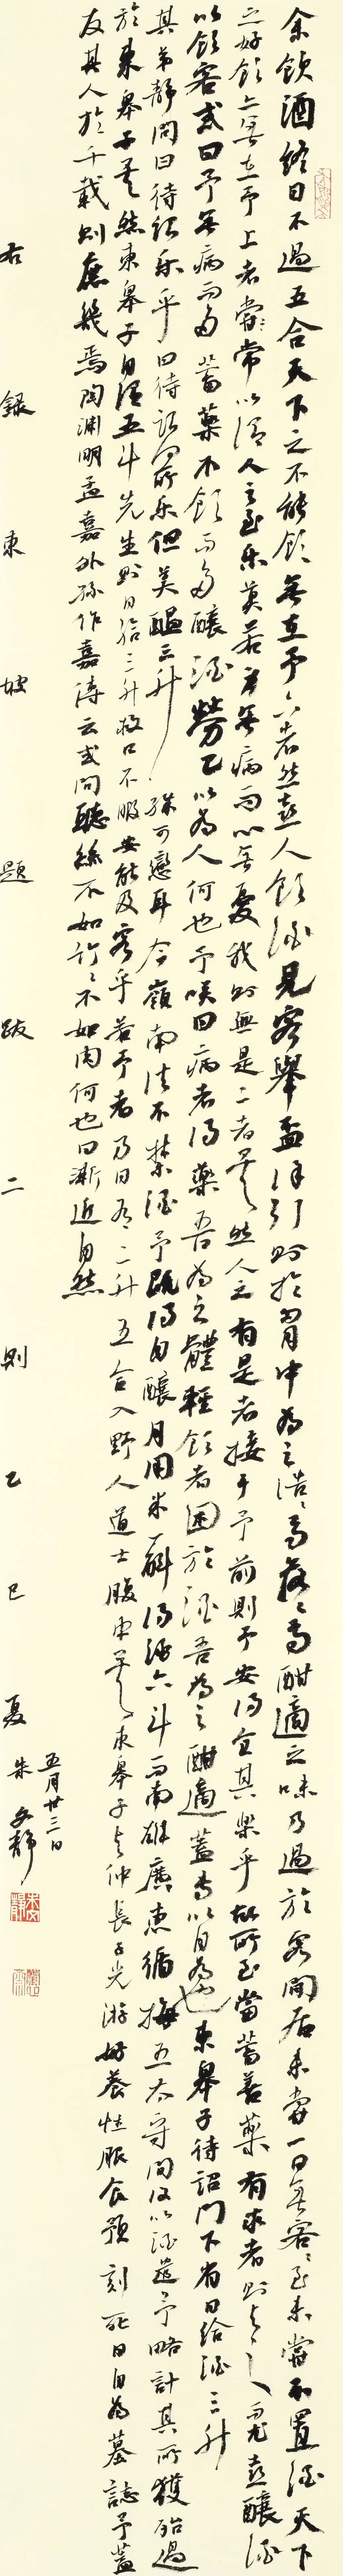 余飲酒終日不過五合天下之不能飲無在予下者然喜人飲酒見客舉盃徐引則於胸中為之浩浩焉落落焉酣適之味乃過於客閒居未嘗一日無客客至未嘗不置酒天下
之好飲亦無在予上者常以謂人之至樂莫若身無病而心無憂我則無是二者矣然人之有是者接于予前則予安得全其樂乎故所至當蓄善藥有求者則與之尤喜釀酒
以飲客或曰予無病而多蓄藥不飲而多釀酒勞己以為人何也予笑曰病者得藥吾為之體輕飲者困於酒吾為之酣適蓋專以自為也東皋子待詔門下省日給酒三升
其弟靜問曰待詔樂乎曰待詔何所樂但美醞三升殊可戀耳今嶺南法不禁酒予既得自釀月用米一斛得酒六斗而南雄廣惠循梅五太守間復以酒遺予略計其所獲殆過
於東皋子矣然東皋子自謂五斗先生則日給三升救口不暇安能及客乎若予者乃日有二升五合入野人道士腹中矣東皋子與仲長子光游好養性服食預刻死日自為墓誌予蓋
友其人於千載則庶幾焉陶淵明孟嘉外孫作嘉傳云或問聽絲不如竹竹不如肉何也曰漸近自然
右錄東坡題跋二則乙巳夏
五月廿三日
朱文靜